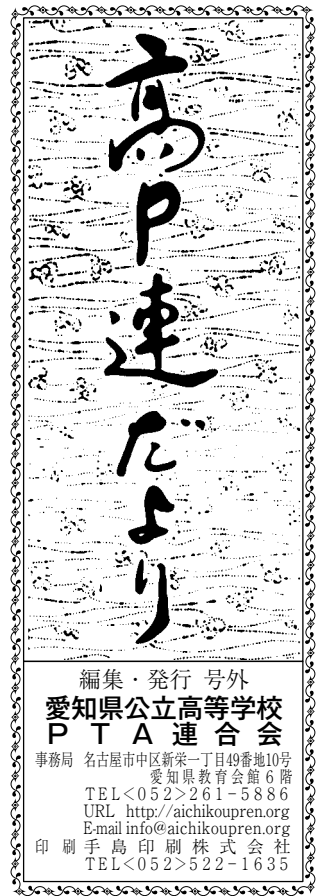 高P連だより
編集・発行 号外
愛知県公立高等学校
PTA連合会
事務局 名古屋市中区新栄一丁目49番地10号
愛知県教育会館6階
TEL<052>261-5886
URL http://aichikoupren.org
E-mail info@aichikoupren.org
印刷 手島印刷株式会社
TEL<052>522-1635